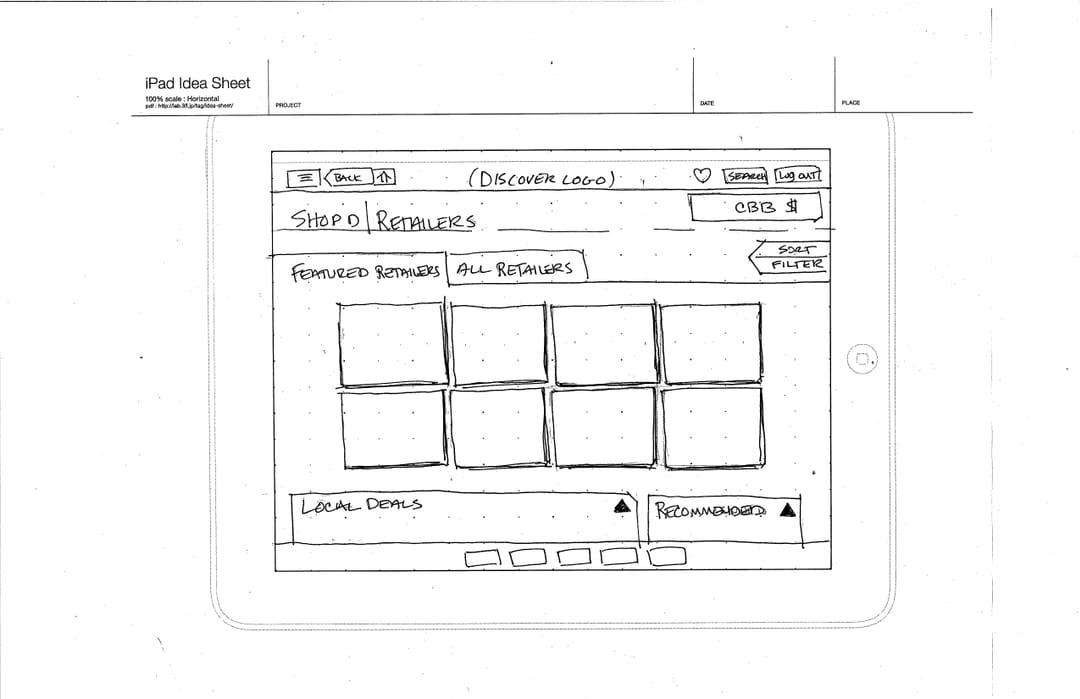 iPad Idea Sheet
100% scale : Horizontal
pdf : http://lab.9fl.jp/tag/idea-sheet/
PROJECT
DATE
PLACE
BACK
(DISCOVER LOGO)
SEARCH
LOG OUT
SHOP D RETAILERS
CBB $
SORT
FILTER
FEATURED RETAILERS
ALL RETAILERS
LOCAL DEALS
RECOMMENDED